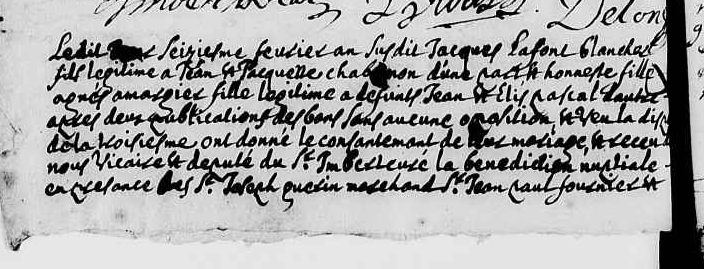 Delon
Ledit jour seiziesme feurier an susdit Jacques Lafont blancher
fils legitime a Jean & Jacquette chabanon dune part & honneste fille
agnés amargier fille legitime a defunts Jean & Elis pascal dautre
apres deux publications des bans sans aucune oposition, & veu la dis
de la troisiesme ont donné le consantement de leur mariage, & receu
nous Vicaire & deputé du Sr. Imbert curé la benediction nuptiale
en presance des Sr. Joseph guerin marchand Sr. Jean paul fournier &